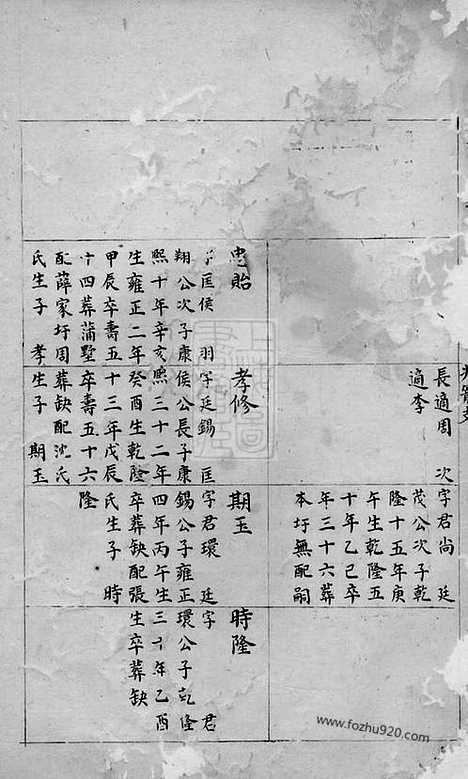 長適周 次
適李
字君尚 廷
茂公次子乾
隆十五年庚
午生乾隆五
十年乙巳卒
年三十六葬
本圩無配嗣
忠貽
字匡侯 羽
翔公次子康
熙十年辛亥
生雍正二年
甲辰卒壽五
十四葬蒲墅
配薛家圩周
氏生子 孝
孝修
字廷錫 匡
侯公長子康
熙三十二年
癸酉生乾隆
十三年戊辰
卒壽五十六
葬缺配沈氏
生子 期玉
期玉
字君環 廷
錫公子雍正
四年丙午生
卒葬缺配張
氏生子 時
隆
時隆
字 君
環公子乾隆
三十年乙酉
生卒葬缺
www.fozhu920.com